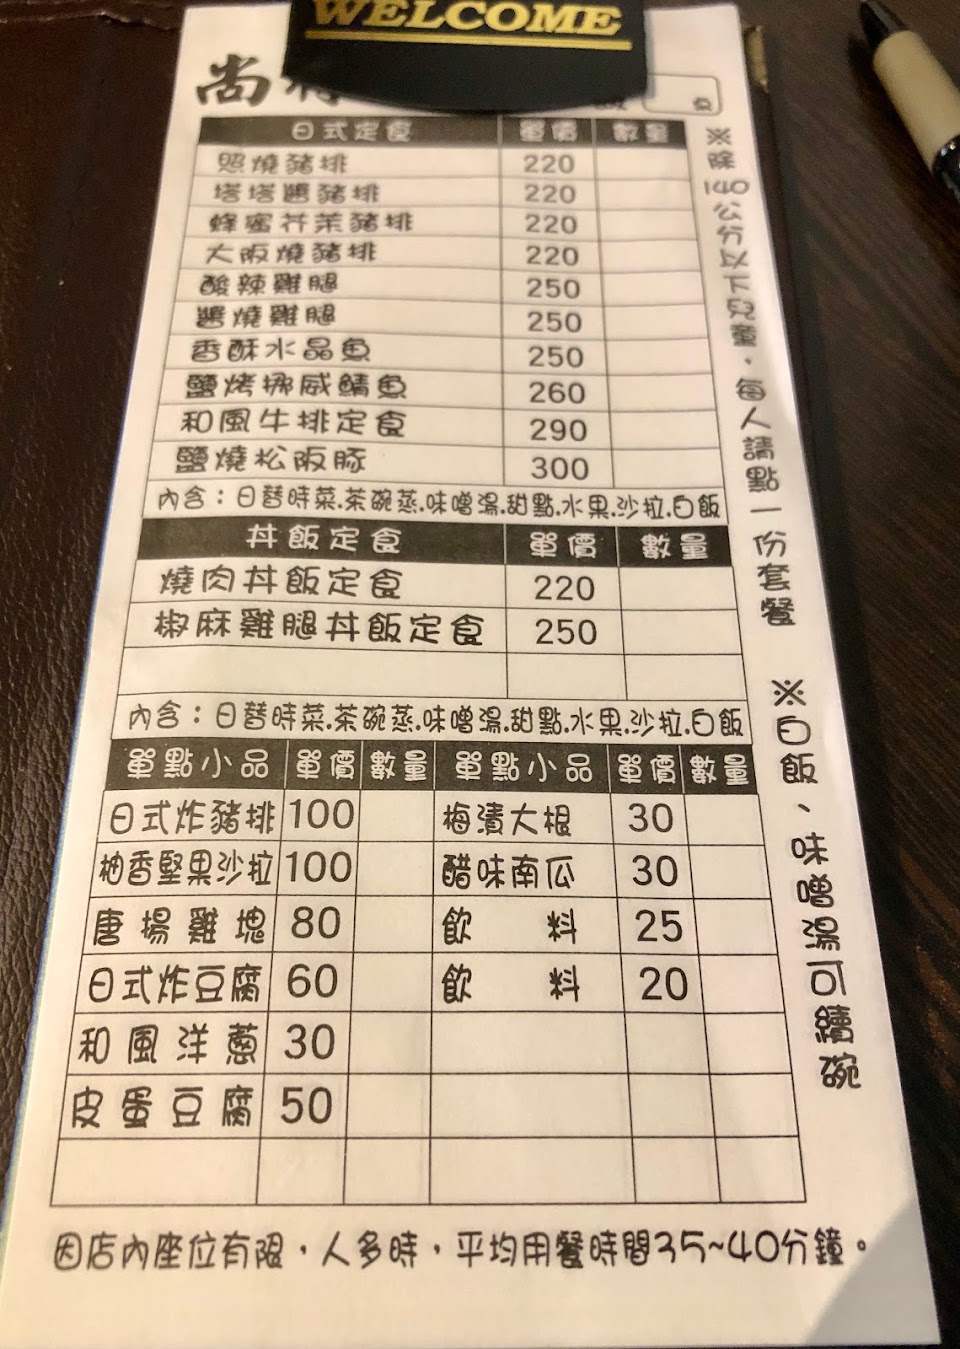 WELCOME
尚
日式定食 單價 數量
照燒豬排 220
塔塔醬豬排 220
蜂蜜芥茉豬排 220
大阪燒豬排 220
酸辣雞腿 250
醬燒雞腿 250
香酥水晶魚 250
鹽烤挪威鯖魚 260
和風牛排定食 290
鹽燒松阪豚 300
內含：日替時菜.茶碗蒸.味噌湯.甜點.水果.沙拉.白飯
丼飯定食 單價 數量
燒肉丼飯定食 220
椒麻雞腿丼飯定食 250
內含：日替時菜.茶碗蒸.味噌湯.甜點.水果.沙拉.白飯
單點小品 單價 數量 單點小品 單價 數量
日式炸豬排 100 梅漬大根 30
柚香堅果沙拉 100 醋味南瓜 30
唐揚雞塊 80 飲料 25
日式炸豆腐 60 飲料 20
和風洋蔥 30
皮蛋豆腐 50
※除140公分以下兒童，每人請點一份套餐
※白飯、味噌湯可續碗
因店內座位有限，人多時，平均用餐時間35~40分鐘。